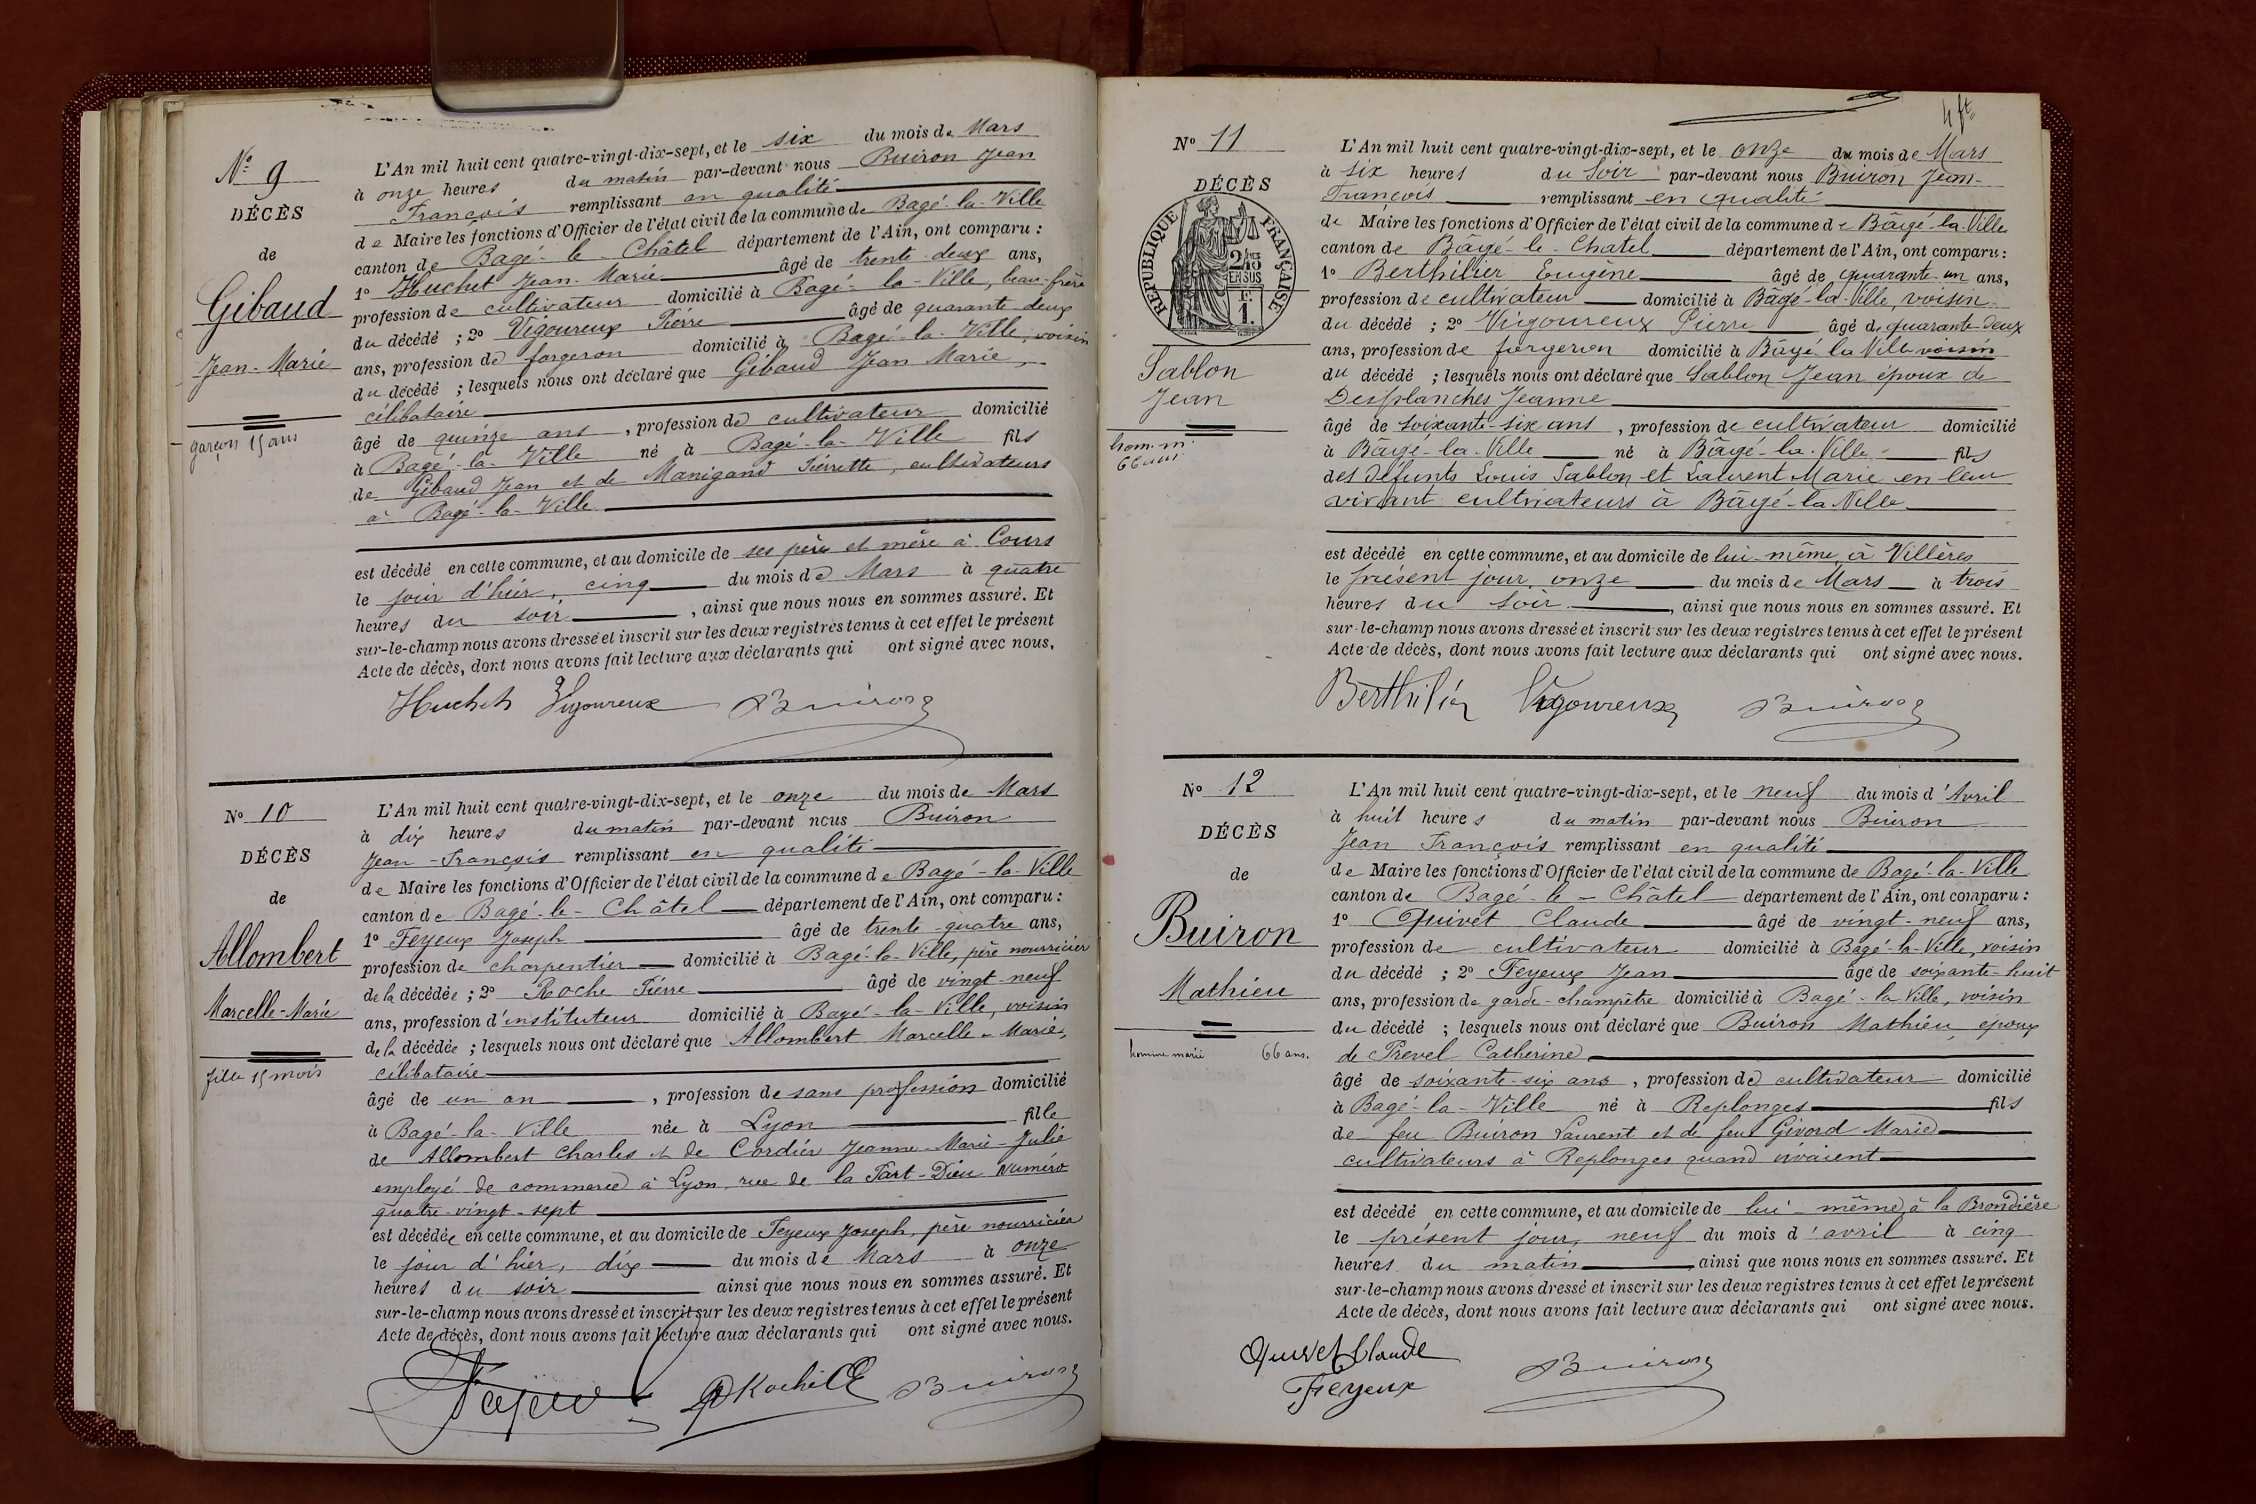 Nº 9
DÉCÈS
de
Gibaud
Jean-Marie
garçon 15 ans
L'An mil huit cent quatre-vingt-dix-sept, et le six du mois de Mars
à onze heures du matin par-devant nous Buiron Jean
François remplissant en qualité
de Maire les fonctions d'Officier de l'état civil de la commune de Bagé-la-Ville
canton de Bagé-le-Châtel département de l'Ain, ont comparu :
1º Huchet Jean-Marie âgé de trente-deux ans,
profession de cultivateur domicilié à Bagé-la-Ville, beau-frère
du décédé ; 2º Vigoureux Pierre âgé de quarante deux
ans, profession de forgeron domicilié à Bagé-la-Ville, voisin
du décédé ; lesquels nous ont déclaré que Gibaud Jean Marie,
célibataire
âgé de quinze ans, profession de cultivateur domicilié
à Bagé-la-Ville né à Bagé-la-Ville fils
de Gibaud Jean et de Manigand Pierrette, cultivateurs
à Bagé-la-Ville
est décédé en cette commune, et au domicile de ses père et mère à Cours
le jour d'hier, cinq du mois de Mars à quatre
heures du soir, ainsi que nous nous en sommes assuré. Et
sur-le-champ nous avons dressé et inscrit sur les deux registres tenus à cet effet le présent
Acte de décès, dont nous avons fait lecture aux déclarants qui ont signé avec nous.
Huchet Vigoureux Buiron
Nº 10
DÉCÈS
de
Allombert
Marcelle-Marie
fille 15 mois
L'An mil huit cent quatre-vingt-dix-sept, et le onze du mois de Mars
à dix heures du matin par-devant nous Buiron
Jean-François remplissant en qualité
de Maire les fonctions d'Officier de l'état civil de la commune de Bagé-la-Ville
canton de Bagé-le-Châtel département de l'Ain, ont comparu :
1º Feyeux Joseph âgé de trente-quatre ans,
profession de charpentier domicilié à Bagé-la-Ville, père nourricier
de la décédée ; 2º Roche Pierre âgé de vingt-neuf
ans, profession d'instituteur domicilié à Bagé-la-Ville, voisin
de la décédée ; lesquels nous ont déclaré que Allombert Marcelle-Marie,
célibataire
âgé de un an, profession de sans profession domicilié
à Bagé-la-Ville née à Lyon fille
de Allombert Charles et de Cordier Jeanne-Marie-Julie
employé de commerce à Lyon, rue de la Part-Dieu Numéro
quatre-vingt-sept
est décédée en cette commune, et au domicile de Feyeux Joseph, père nourricier
le jour d'hier, dix du mois de Mars à onze
heures du soir ainsi que nous nous en sommes assuré. Et
sur-le-champ nous avons dressé et inscrit sur les deux registres tenus à cet effet le présent
Acte de décès, dont nous avons fait lecture aux déclarants qui ont signé avec nous.
Feyeux Roche Buiron
4 ft
Nº 11
DÉCÈS
RÉPUBLIQUE FRANÇAISE
2/10 EN SUS
1 F.
Sablon
Jean
hom. m.
66 ans
L'An mil huit cent quatre-vingt-dix-sept, et le onze du mois de Mars
à six heures du soir par-devant nous Buiron Jean-
François remplissant en qualité
de Maire les fonctions d'Officier de l'état civil de la commune de Bâgé-la-Ville
canton de Bâgé-le-Chatel département de l'Ain, ont comparu :
1º Berthilier Eugène âgé de quarante-un ans,
profession de cultivateur domicilié à Bâgé-la-Ville, voisin
du décédé ; 2º Vigoureux Pierre âgé de quarante-deux
ans, profession de forgeron domicilié à Bâgé la Ville voisin
du décédé ; lesquels nous ont déclaré que Sablon Jean époux de
Desplanches Jeanne
âgé de soixante-six ans, profession de cultivateur domicilié
à Bâgé-la-Ville né à Bâgé-la-Ville fils
des défunts Louis Sablon et Laurent Marie en leur
vivant cultivateurs à Bâgé-la-Ville
est décédé en cette commune, et au domicile de lui-même, à Villères
le présent jour, onze du mois de Mars à trois
heures du soir, ainsi que nous nous en sommes assuré. Et
sur-le-champ nous avons dressé et inscrit sur les deux registres tenus à cet effet le présent
Acte de décès, dont nous avons fait lecture aux déclarants qui ont signé avec nous.
Berthilier Vigoureux Buiron
Nº 12
DÉCÈS
de
Buiron
Mathieu
homme marié 66 ans.
L'An mil huit cent quatre-vingt-dix-sept, et le neuf du mois d'Avril
à huit heures du matin par-devant nous Buiron
Jean François remplissant en qualité
de Maire les fonctions d'Officier de l'état civil de la commune de Bagé-la-Ville
canton de Bagé-le-Châtel département de l'Ain, ont comparu :
1º Quivet Claude âgé de vingt-neuf ans,
profession de cultivateur domicilié à Bagé-la-Ville, voisin
du décédé ; 2º Feyeux Jean âgé de soixante-huit
ans, profession de garde-champêtre domicilié à Bagé-la Ville, voisin
du décédé ; lesquels nous ont déclaré que Buiron Mathieu, époux
de Prevel Catherine
âgé de soixante-six ans, profession de cultivateur domicilié
à Bagé-la-Ville né à Replonges fils
de feu Buiron Laurent et de feue Givord Marie
cultivateurs à Replonges quand vivaient
est décédé en cette commune, et au domicile de lui-même, à la Brondière
le présent jour, neuf du mois d'avril à cinq
heures du matin, ainsi que nous nous en sommes assuré. Et
sur-le-champ nous avons dressé et inscrit sur les deux registres tenus à cet effet le présent
Acte de décès, dont nous avons fait lecture aux déclarants qui ont signé avec nous.
Quivet Claude Buiron
Feyeux